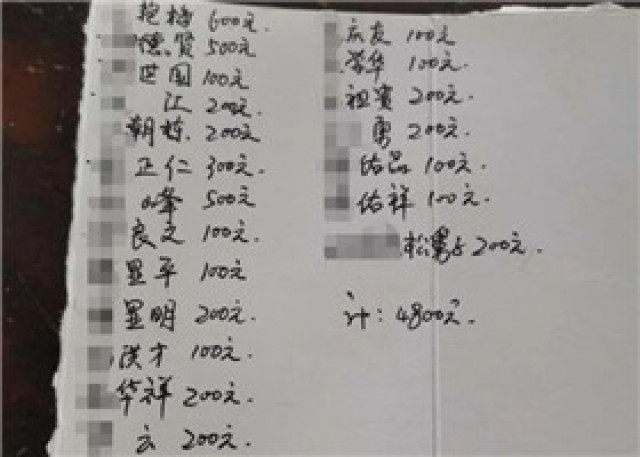 600元
德贤 500元
世国 100元
江 200元.
朝栋. 200元
正仁 300元.
峰 500元
良文 100元.
显平 100元
显明 200元.
洪才 100元.
华祥 200元.
云 200元.
庆友 100元
荣华 100元.
祖宾 200元.
勇 200元.
佑品 100元.
佑祥 100元.
松 200元.
计: 4800元.